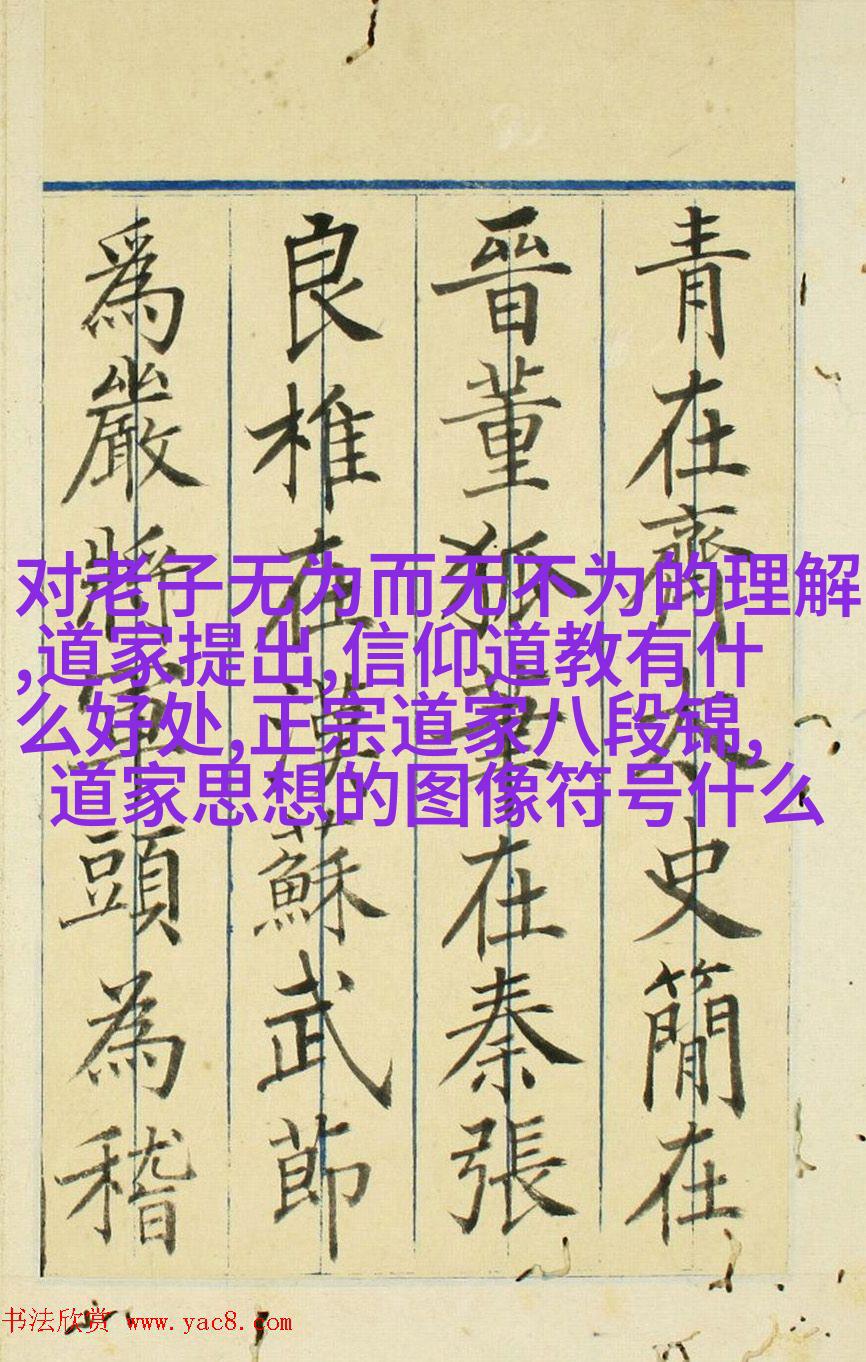 青在齊太史簡在
晉董狐筆在秦張
良椎在漢蘇武節
爲嚴將軍頭為稽
对老子无为而无不为的理解
,道家提出,信仰道教有什
么好处,正宗道家八段锦,
道家思想的图像符号什么
书法欣赏 www.yac8.com